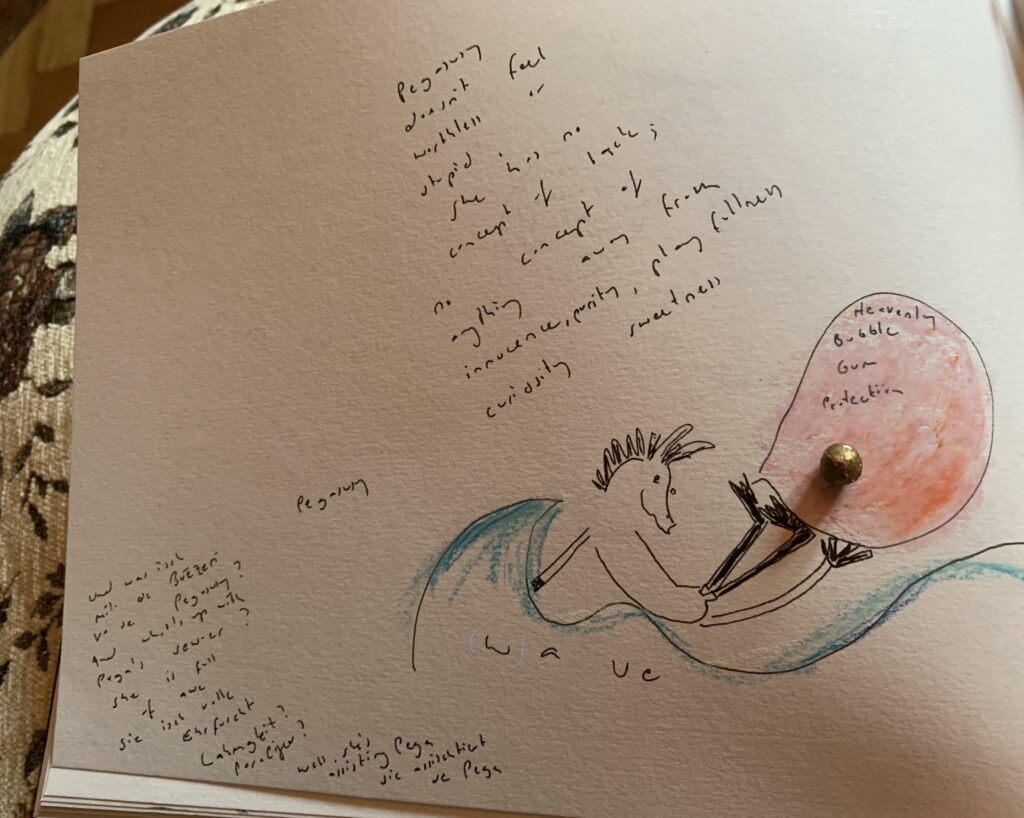 Pegasusy
doesn't feel
worthless or
stupid
she has no
concept of lack;
no concept of
anything away from
innocence, purity, playfullness
curiosity sweetness
Heavenly
Bubble
Gum
Protection
Pegasusy
(w) a ve
und was isch
mit de
vo de Pegasusy?
And what's up with
Pega's sew-er?
she is full
of awe
sie isch volle
Ehrfurcht
Lahmgheit?
Paralizer?
well she's
assisting Pega
sie assischtiert
de Pega